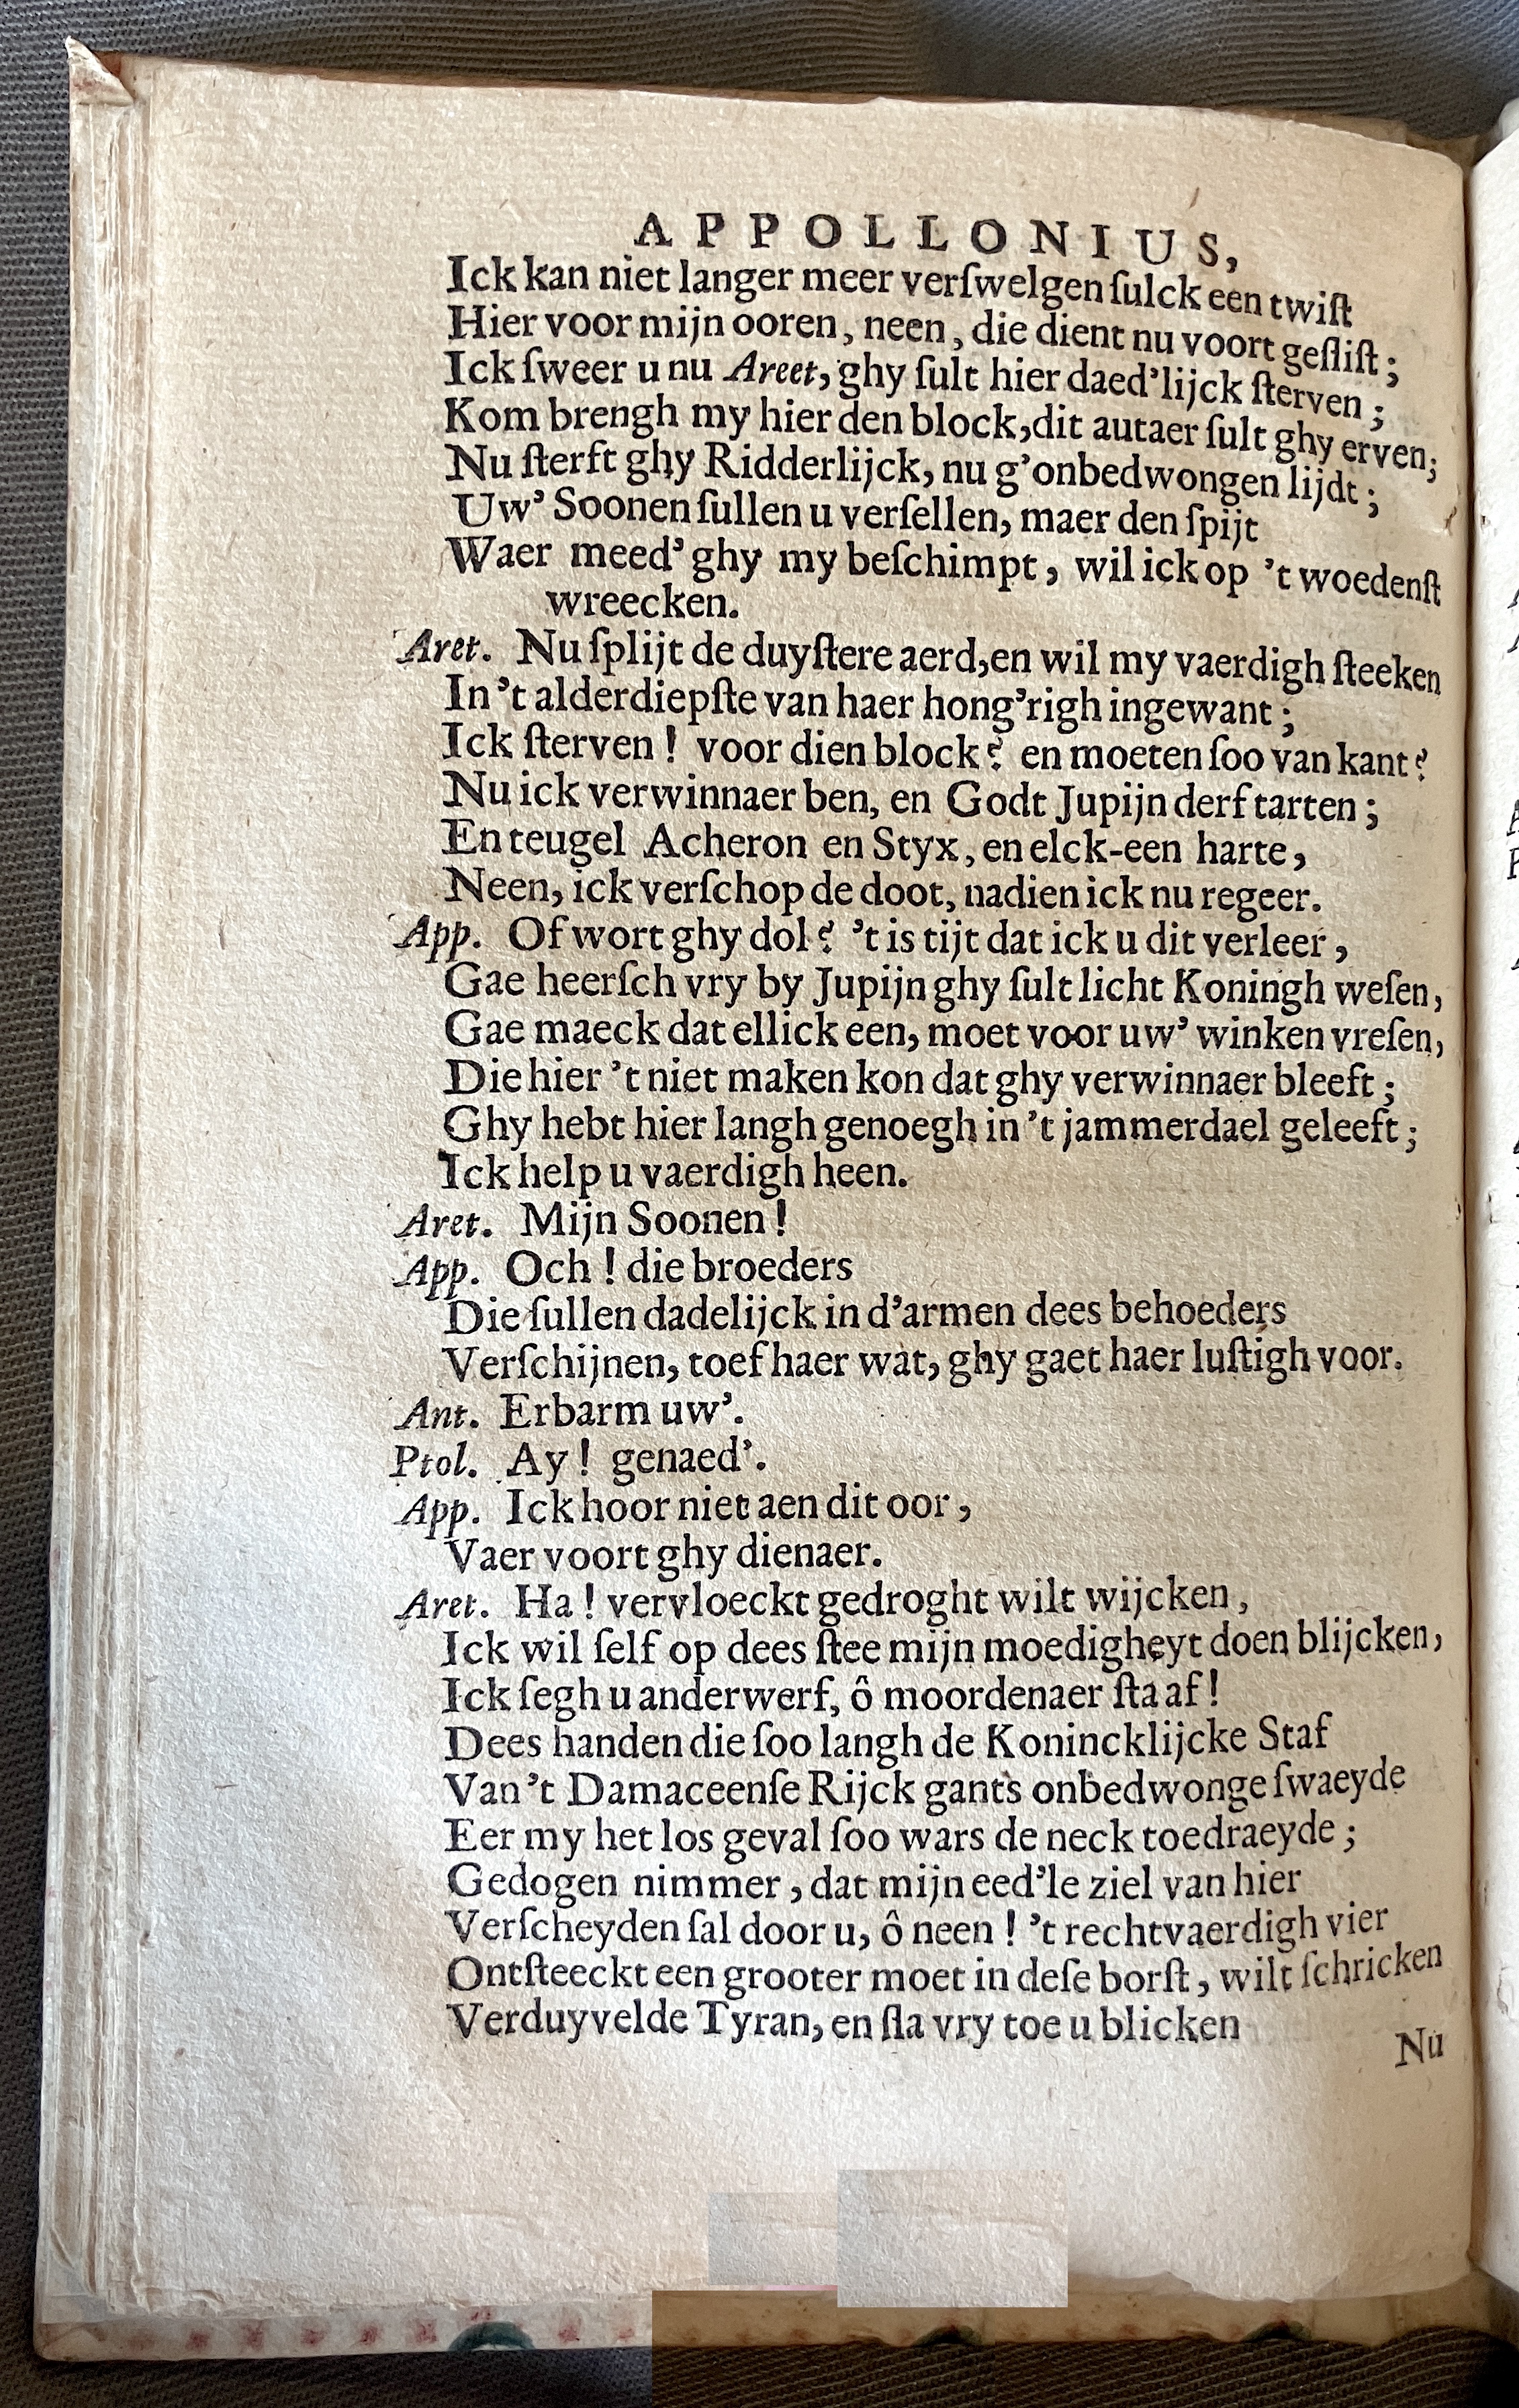 APPOLLONIUS,
Ick kan niet langer meer verſwelgen ſulck een twiſt
Hier voor mijn ooren, neen, die dient nu voort geſliſt;
Ick ſweer u nu Areet, ghy ſult hier daed'lijck ſterven;
Kom brengh my hier den block, dit autaer ſult ghy erven;
Nu ſterft ghy Ridderlijck, nu g'onbedwongen lijdt;
Uw' Soonen ſullen u verſellen, maer den ſpijt
Waer meed' ghy my beſchimpt, wil ick op 't woedenſt
wreecken.
Aret. Nu ſplijt de duyſtere aerd, en wil my vaerdigh ſteeken
In 't alderdiepſte van haer hong'righ ingewant;
Ick ſterven! voor dien block? en moeten ſoo van kant?
Nu ick verwinnaer ben, en Godt Jupijn derf tarten;
En teugel Acheron en Styx, en elck-een harte,
Neen, ick verſchop de doot, nadien ick nu regeer.
App. Of wort ghy dol? 't is tijt dat ick u dit verleer,
Gae heerſch vry by Jupijn ghy ſult licht Koningh weſen,
Gae maeck dat ellick een, moet voor uw' winken vreſen,
Die hier 't niet maken kon dat ghy verwinnaer bleeft;
Ghy hebt hier langh genoegh in 't jammerdael geleeft;
Ick help u vaerdigh heen.
Aret. Mijn Soonen!
App. Och! die broeders
Die ſullen dadelijck in d'armen dees behoeders
Verſchijnen, toef haer wat, ghy gaet haer luſtigh voor.
Ant. Erbarm uw'.
Ptol. Ay! genaed'.
App. Ick hoor niet aen dit oor,
Vaer voort ghy dienaer.
Aret. Ha! vervloeckt gedroght wilt wijcken,
Ick wil ſelf op dees ſtee mijn moedigheyt doen blijcken,
Ick ſegh u anderwerf, ô moordenaer ſta af!
Dees handen die ſoo langh de Konincklijcke Staf
Van 't Damaceenſe Rijck gants onbedwonge ſwaeyde
Eer my het los geval ſoo wars de neck toedraeyde;
Gedogen nimmer, dat mijn eed'le ziel van hier
Verſcheyden ſal door u, ô neen! 't rechtvaerdigh vier
Ontſteeckt een grooter moet in deſe borſt, wilt ſchricken
Verduyvelde Tyran, en ſla vry toe u blicken
Nu